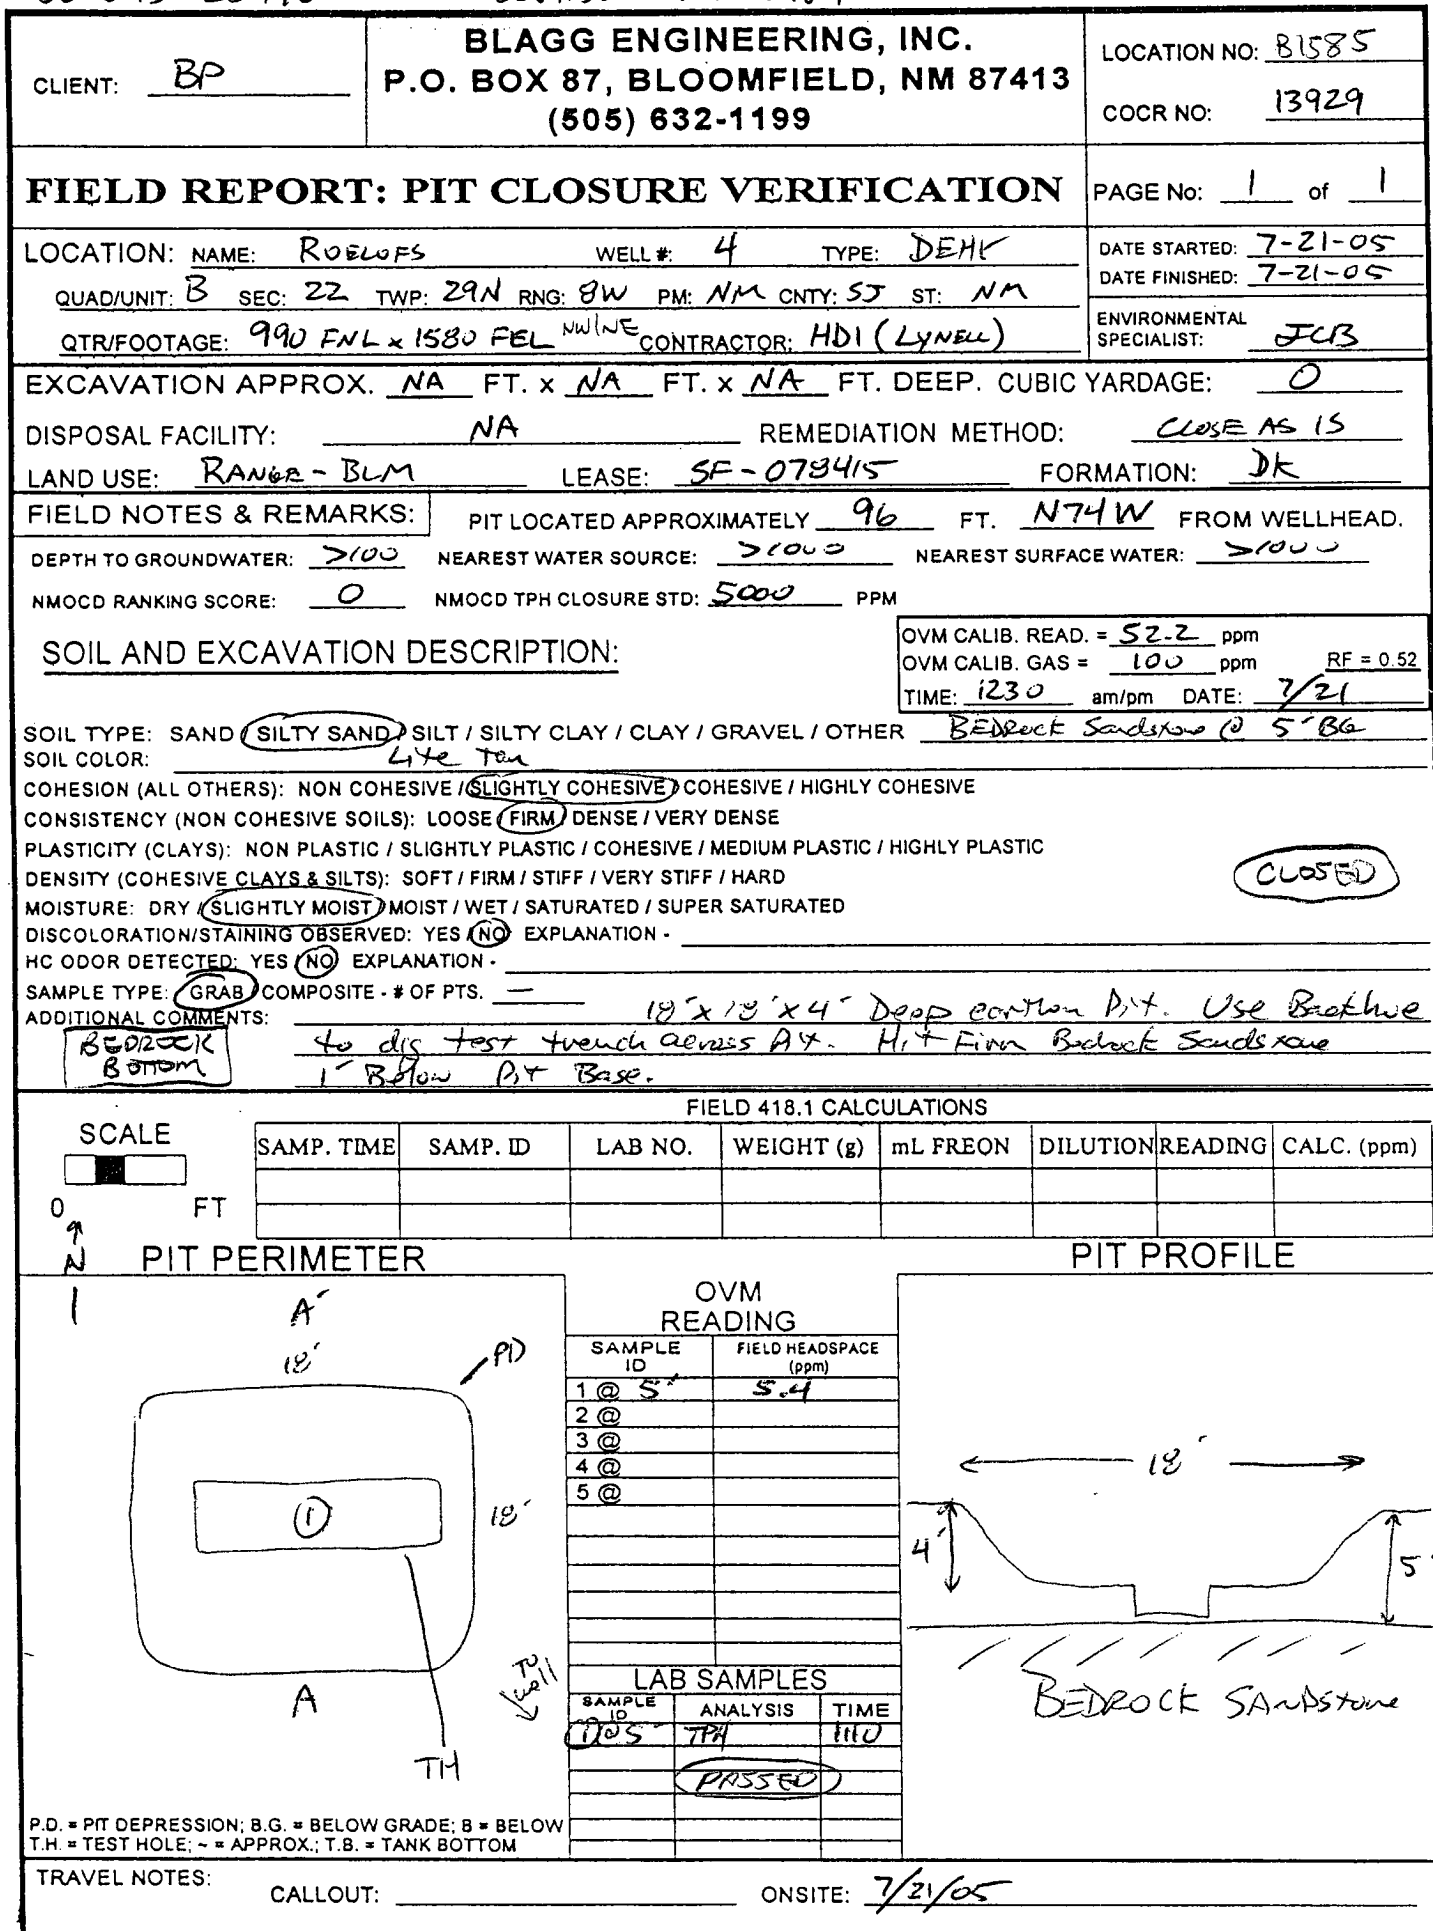 BLAGG ENGINEERING, INC.
P.O. BOX 87, BLOOMFIELD, NM 87413
(505) 632-1199
CLIENT: BP
LOCATION NO: B1585
COCR NO: 13929
FIELD REPORT: PIT CLOSURE VERIFICATION
PAGE No: 1 of 1
LOCATION: NAME: ROELOFS WELL #: 4 TYPE: DEHY
QUAD/UNIT: B SEC: 22 TWP: 29N RNG: 8W PM: NM CNTY: SJ ST: NM
QTR/FOOTAGE: 990 FNL x 1580 FEL NW/NE CONTRACTOR: HDI (LYNELL)
DATE STARTED: 7-21-05
DATE FINISHED: 7-21-05
ENVIRONMENTAL
SPECIALIST: JCB
EXCAVATION APPROX. NA FT. x NA FT. x NA FT. DEEP. CUBIC YARDAGE: 0
DISPOSAL FACILITY: NA REMEDIATION METHOD: CLOSE AS IS
LAND USE: RANGE - BLM LEASE: SF-078415 FORMATION: DK
FIELD NOTES & REMARKS: PIT LOCATED APPROXIMATELY 96 FT. N74W FROM WELLHEAD.
DEPTH TO GROUNDWATER: >100 NEAREST WATER SOURCE: >1000 NEAREST SURFACE WATER: >1000
NMOCD RANKING SCORE: 0 NMOCD TPH CLOSURE STD: 5000 PPM
SOIL AND EXCAVATION DESCRIPTION:
OVM CALIB. READ. = 52.2 ppm
OVM CALIB. GAS = 100 ppm RF = 0.52
TIME: 1230 am/pm DATE: 7/21
SOIL TYPE: SAND / SILTY SAND / SILT / SILTY CLAY / CLAY / GRAVEL / OTHER BEDRock Sandstone @ 5' BG
SOIL COLOR: Lite Tan
COHESION (ALL OTHERS): NON COHESIVE / SLIGHTLY COHESIVE / COHESIVE / HIGHLY COHESIVE
CONSISTENCY (NON COHESIVE SOILS): LOOSE / FIRM / DENSE / VERY DENSE
PLASTICITY (CLAYS): NON PLASTIC / SLIGHTLY PLASTIC / COHESIVE / MEDIUM PLASTIC / HIGHLY PLASTIC
DENSITY (COHESIVE CLAYS & SILTS): SOFT / FIRM / STIFF / VERY STIFF / HARD
CLOSED
MOISTURE: DRY / SLIGHTLY MOIST / MOIST / WET / SATURATED / SUPER SATURATED
DISCOLORATION/STAINING OBSERVED: YES / NO EXPLANATION -
HC ODOR DETECTED: YES / NO EXPLANATION -
SAMPLE TYPE: GRAB / COMPOSITE - # OF PTS. —
ADDITIONAL COMMENTS: 18' x 18' x 4' Deep earthen Pit. Use Backhoe
to dig test trench across Pit. Hit Firm Bedrock Sandstone
1' Below Pit Base.
BEDROCK
BOTTOM
FIELD 418.1 CALCULATIONS
SCALE
0 FT
SAMP. TIME SAMP. ID LAB NO. WEIGHT (g) mL FREON DILUTION READING CALC. (ppm)
N
PIT PERIMETER
PIT PROFILE
A'
18'
PD
1
18'
TH
A
TO well
OVM
READING
SAMPLE ID FIELD HEADSPACE (ppm)
1 @ 5' 5.4
2 @
3 @
4 @
5 @
LAB SAMPLES
SAMPLE ID ANALYSIS TIME
1@5' TPH 1110
PASSED
18'
4'
5'
BEDROCK SANDSTONE
P.D. = PIT DEPRESSION; B.G. = BELOW GRADE; B = BELOW
T.H. = TEST HOLE; ~ = APPROX.; T.B. = TANK BOTTOM
TRAVEL NOTES:
CALLOUT: ONSITE: 7/21/05